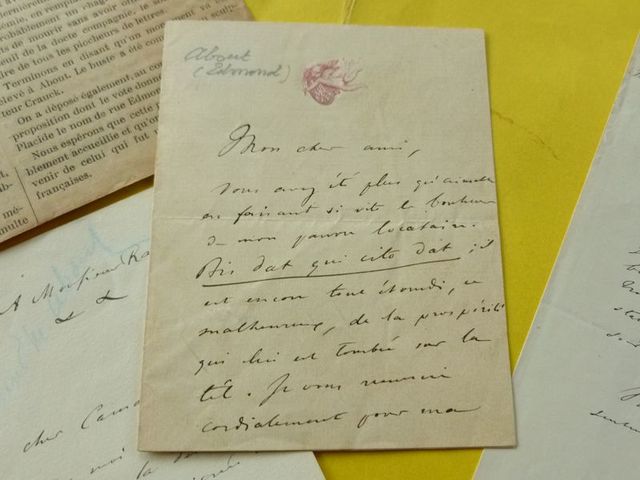 About
(Edmond)
Mon cher ami,
vous avez été plus qu'aimable
en faisant si vite le bonheur
de mon pauvre locataire.
Bis dat qui cito dat ; il
est encore tout étourdi, ce
malheureux, de la prospérité
qui lui est tombée sur la
tête. Je vous remercie
cordialement pour ma
de mourir sans avoir
seuil de la docte compagnie, le so
dre de tous les piocheurs de lettres
Terminons en disant qu'un monument v
élevé à About. Le buste a été con
teur Cranck.
On a déposé également au co
proposition dont le vote don
Placide le nom de rue Edmo
Nous espérons que cette
blement accueillie et qu'o
venir de celui qui fut
françaises.
A Monsieur Ra
cher Cama
moi la